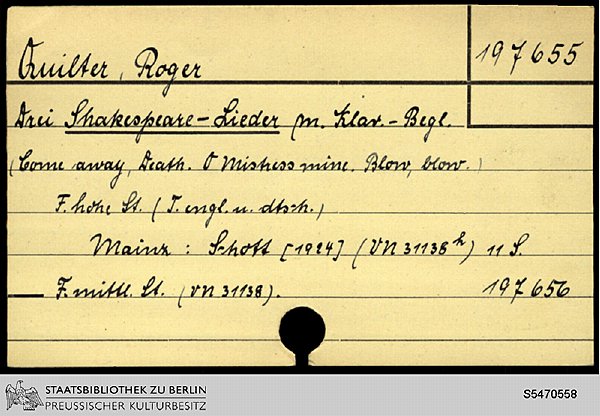 Quilter, Roger
197655
Drei Shakespeare-Lieder m. Klav.-Begl.
(Come away, Death. O Mistress mine. Blow, blow.)
F. hohe St. (T. engl. u. dtsch.)
Mainz : Schott [1924] (VN 31138 h) 11 S.
— F. mittl. St. (VN 31138). 197656
STAATSBIBLIOTHEK ZU BERLIN
PREUSSISCHER KULTURBESITZ
S5470558